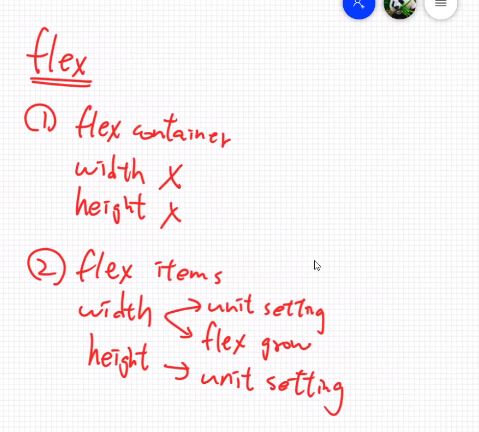 flex
① flex container
width X
height X
② flex items
width → unit setting
→ flex grow
height → unit setting